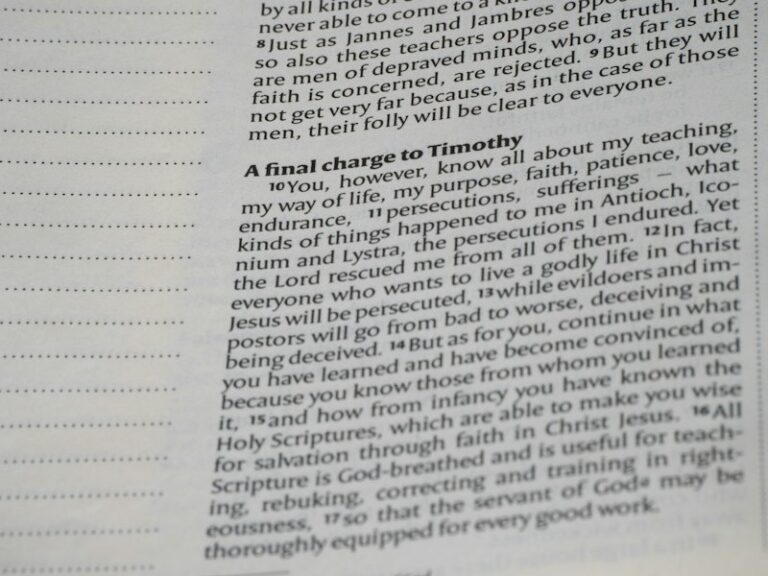 by all kinds of
never able to come to a
8Just as Jannes and Jambres
so also these teachers oppose the truth. They
are men of depraved minds, who, as far as the
faith is concerned, are rejected. 9But they will
not get very far because, as in the case of those
men, their folly will be clear to everyone.
A final charge to Timothy
10You, however, know all about my teaching,
my way of life, my purpose, faith, patience, love,
endurance, 11persecutions, sufferings — what
kinds of things happened to me in Antioch, Ico-
nium and Lystra, the persecutions I endured. Yet
the Lord rescued me from all of them. 12In fact,
everyone who wants to live a godly life in Christ
Jesus will be persecuted, 13while evildoers and im-
postors will go from bad to worse, deceiving and
being deceived. 14But as for you, continue in what
you have learned and have become convinced of,
because you know those from whom you learned
it, 15and how from infancy you have known the
Holy Scriptures, which are able to make you wise
for salvation through faith in Christ Jesus. 16All
Scripture is God-breathed and is useful for teach-
ing, rebuking, correcting and training in right-
eousness, 17so that the servant of Goda may be
thoroughly equipped for every good work.